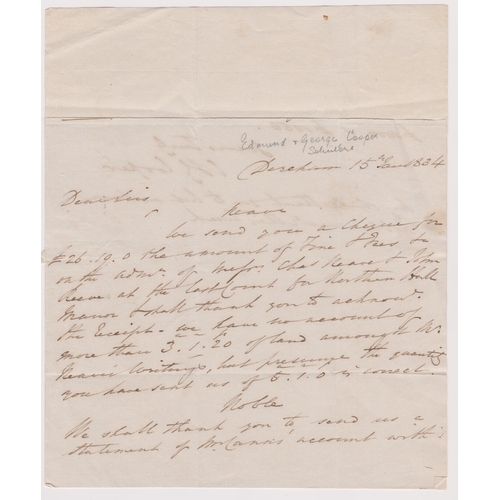 Edmund & George Cooper
Solicitors
Dereham 15th Jan 1834
Dear Sirs
Reeve
We send you a Cheque for
£26.19.0 the amount of Fine & Fees &c
on the admn. of Messrs. Chas Reeve & John
Reeve at the last Court for Northen Hall
Manor & shall thank you to acknow.
the Receipt - we have no account of
more than 3.1.20 of land amongst Mr.
Reeve's Writings, but presume the quantity
you have sent us of 5.1.0 is correct.
Noble
We shall thank you to send us a
statement of Mr account with